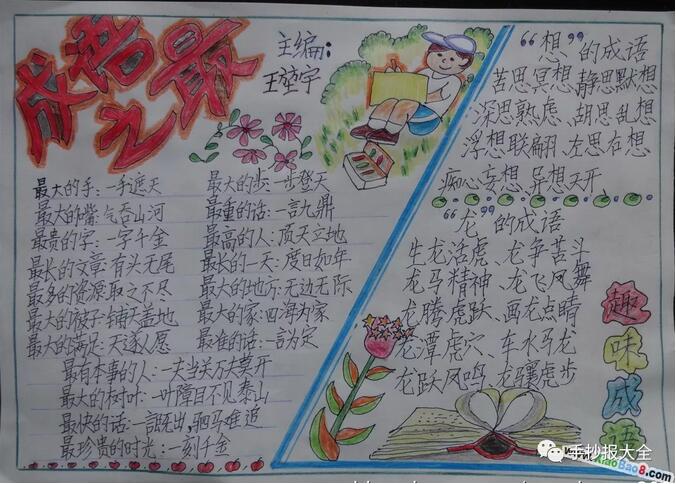 成语之最
主编：
王莹宇
最大的手：一手遮天
最大的嘴：气吞山河
最贵的字：一字千金
最长的文章：有头无尾
最多的资源：取之不尽
最大的被子：铺天盖地
最大的满足：天遂人愿
最大的步：一步登天
最重的话：一言九鼎
最高的人：顶天立地
最长的一天：度日如年
最大的地方：无边无际
最大的家：四海为家
最准的话：一言为定
最有本事的人：一夫当关万夫莫开
最大的树叶：一叶障目不见泰山
最快的话：一言既出、驷马难追
最珍贵的时光：一刻千金
“想”的成语
苦思冥想、静思默想
深思熟虑、胡思乱想
浮想联翩、左思右想
痴心妄想、异想天开
“龙”的成语
生龙活虎、龙争苦斗
龙马精神、龙飞凤舞
龙腾虎跃、画龙点睛
龙潭虎穴、车水马龙
龙跃凤鸣、龙骧虎步
趣味成语
手抄报大全